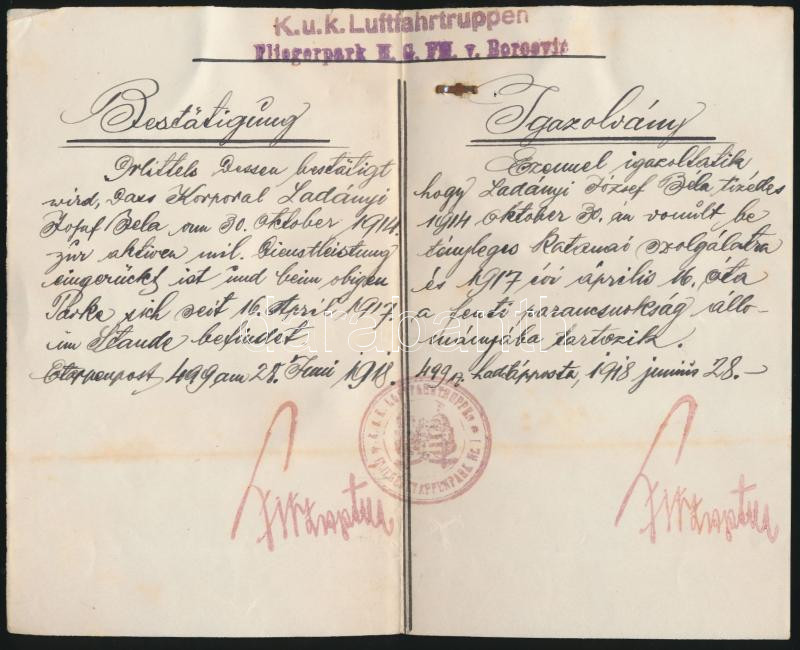 K.u.k. Luftfahrtruppen
Fliegerpark H. G. FM. v. Boroevic
Bestätigung
Mittels Dessen bestätigt
wird, Dass Korporal Ladányi
Josef Bela am 30. Oktober 1914.
zur aktiven mil. Dienstleistung
eingerückt ist und beim obigen
Parke sich seit 16. April 1917.
im Stande befindet
Etappenpost 499 am 28. Juni 1918.
Igazolvány
Ezennel igazoltatik
hogy Ladányi József Béla tizedes
1914 október 30.-án vonult be
tényleges katonai szolgálatra
és 1917 évi április 16. óta
a fenti parancsnokság állo-
mányába tartozik.
499 . tábori posta, 1918 junius 28.-
K.u.K. LUFTFAHRTRUPPEN
FLIEGERETAPPENPARK
darabanth